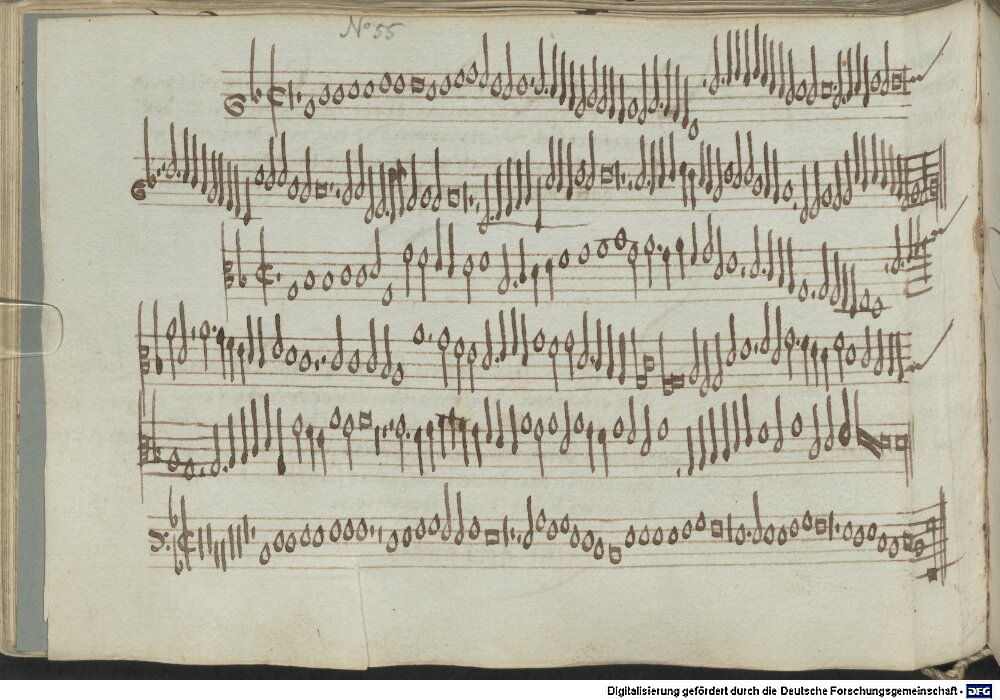 No 55
Digitalisierung gefördert durch die Deutsche Forschungsgemeinschaft - DFG